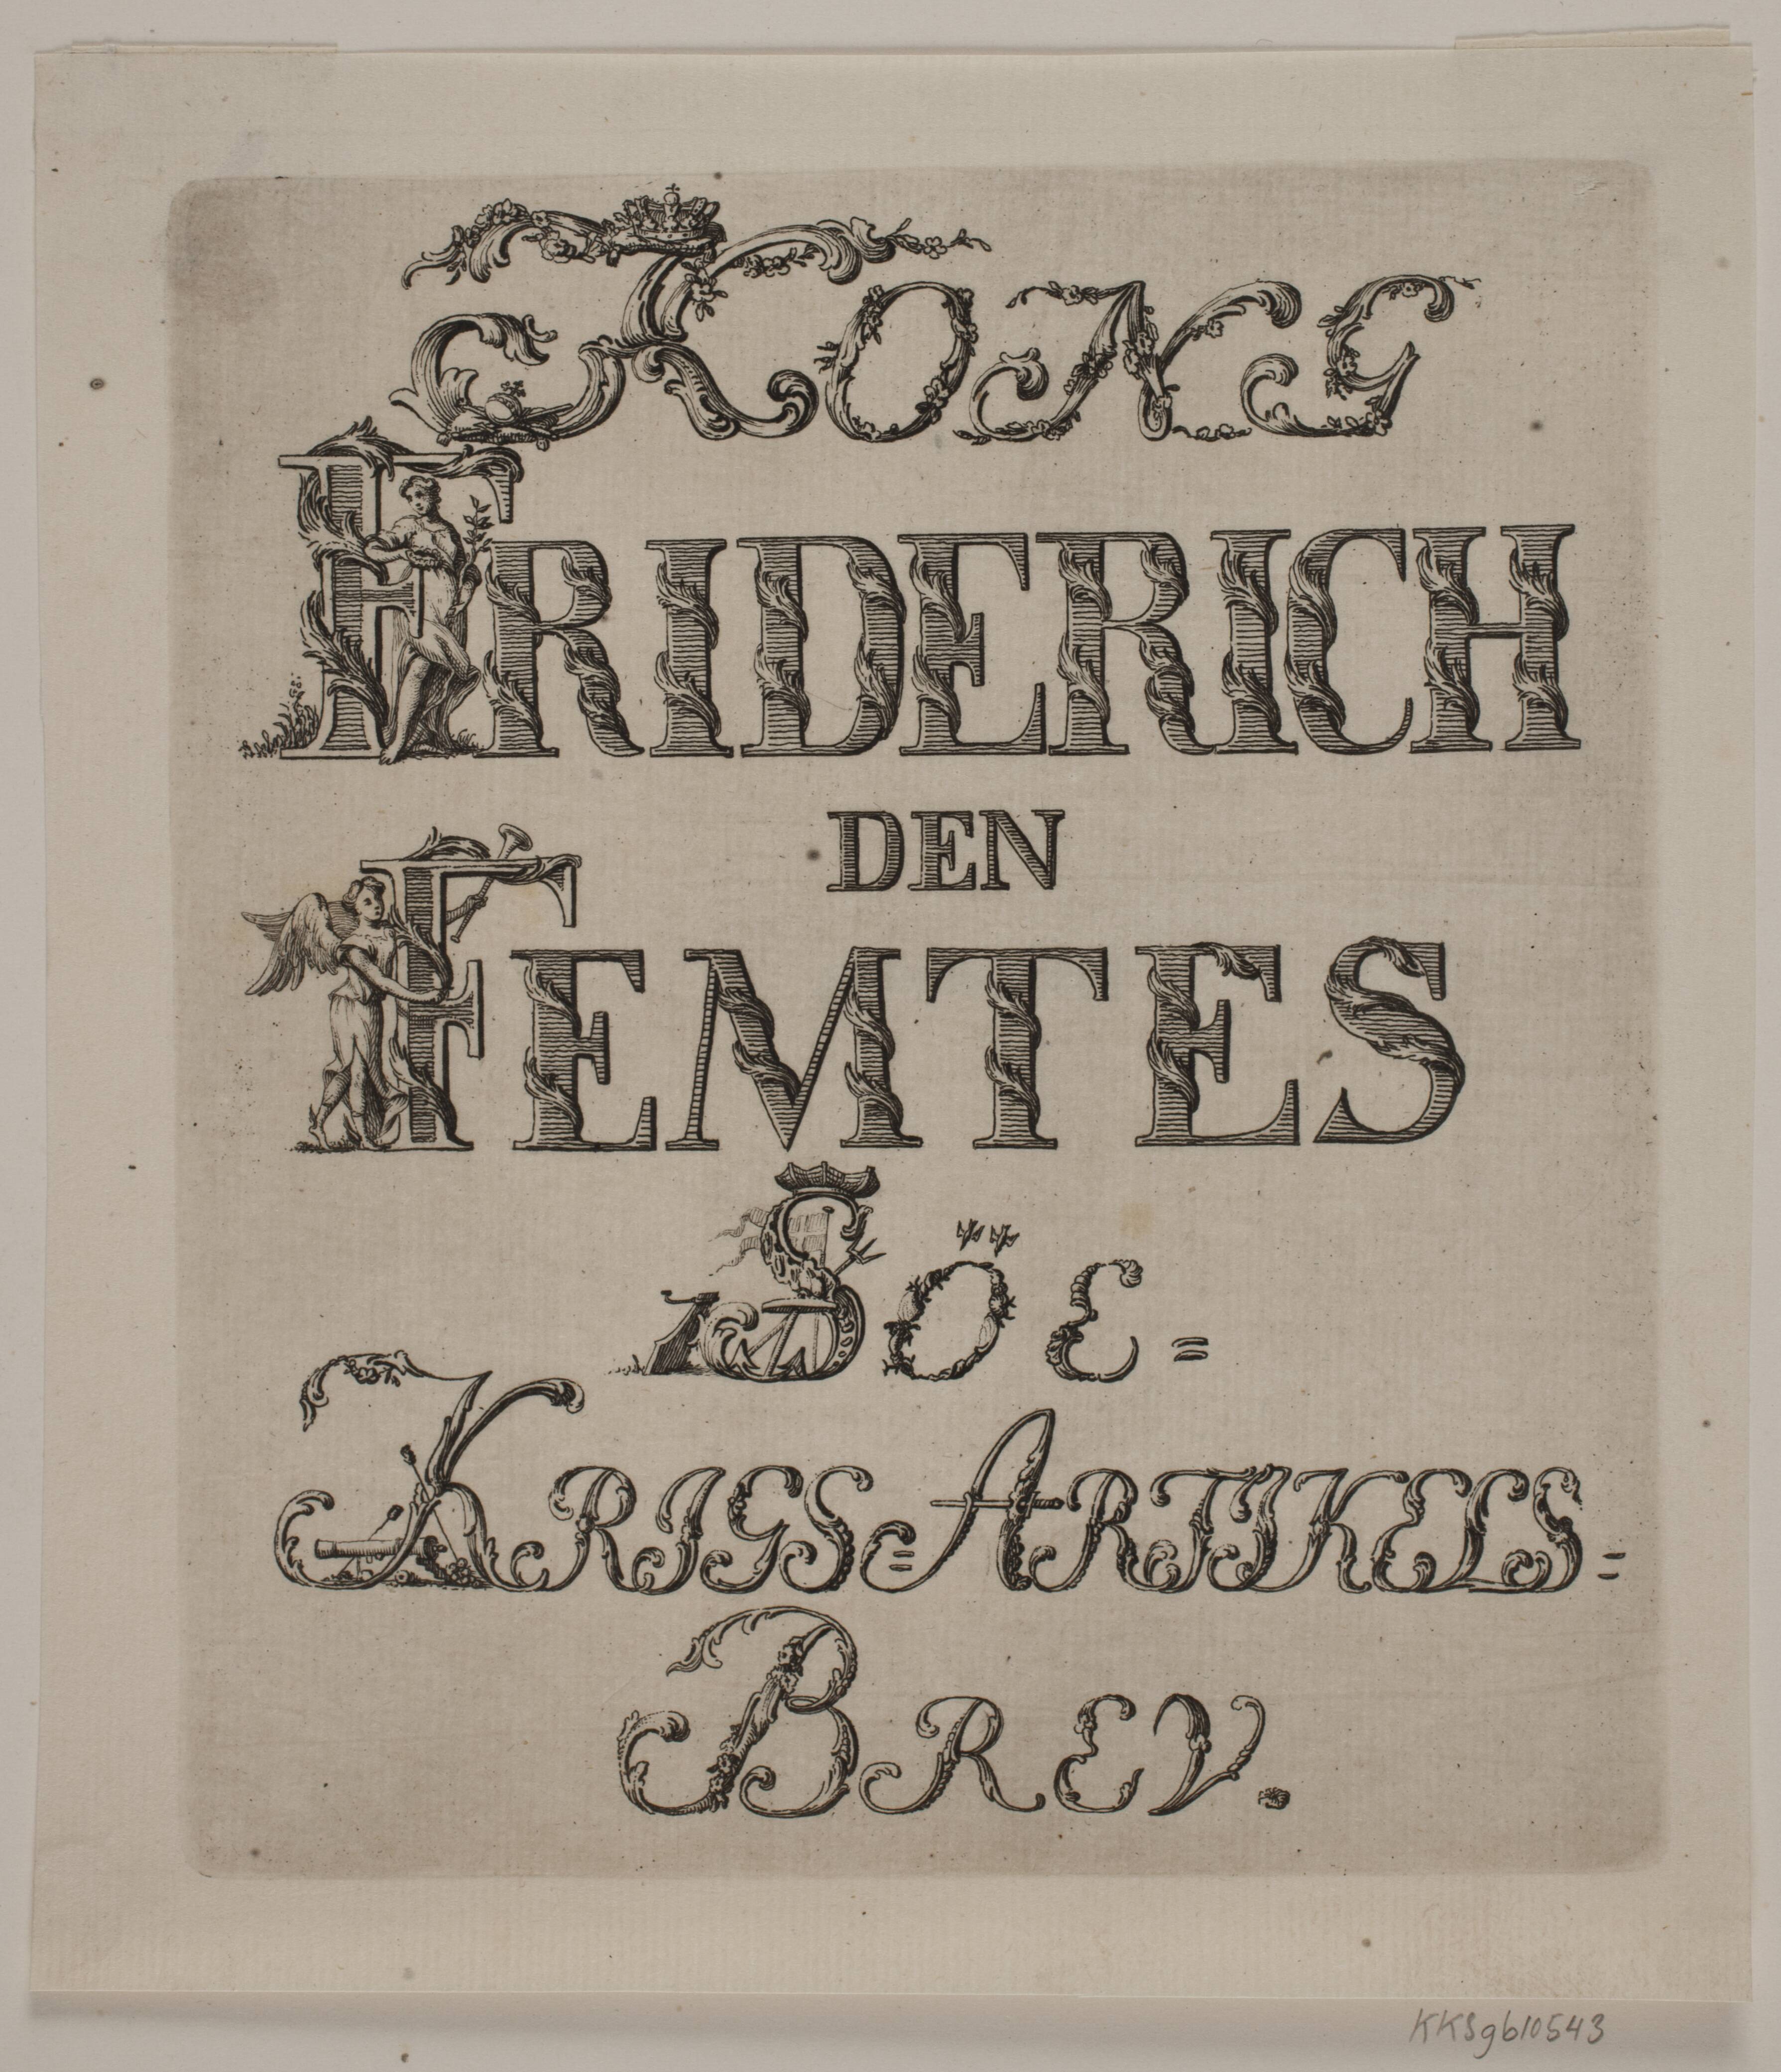 KONG
FRIDERICH
DEN
FEMTES
SÖE=
KRIGS=ARTIKELS=
BREV.
KKSgb10543